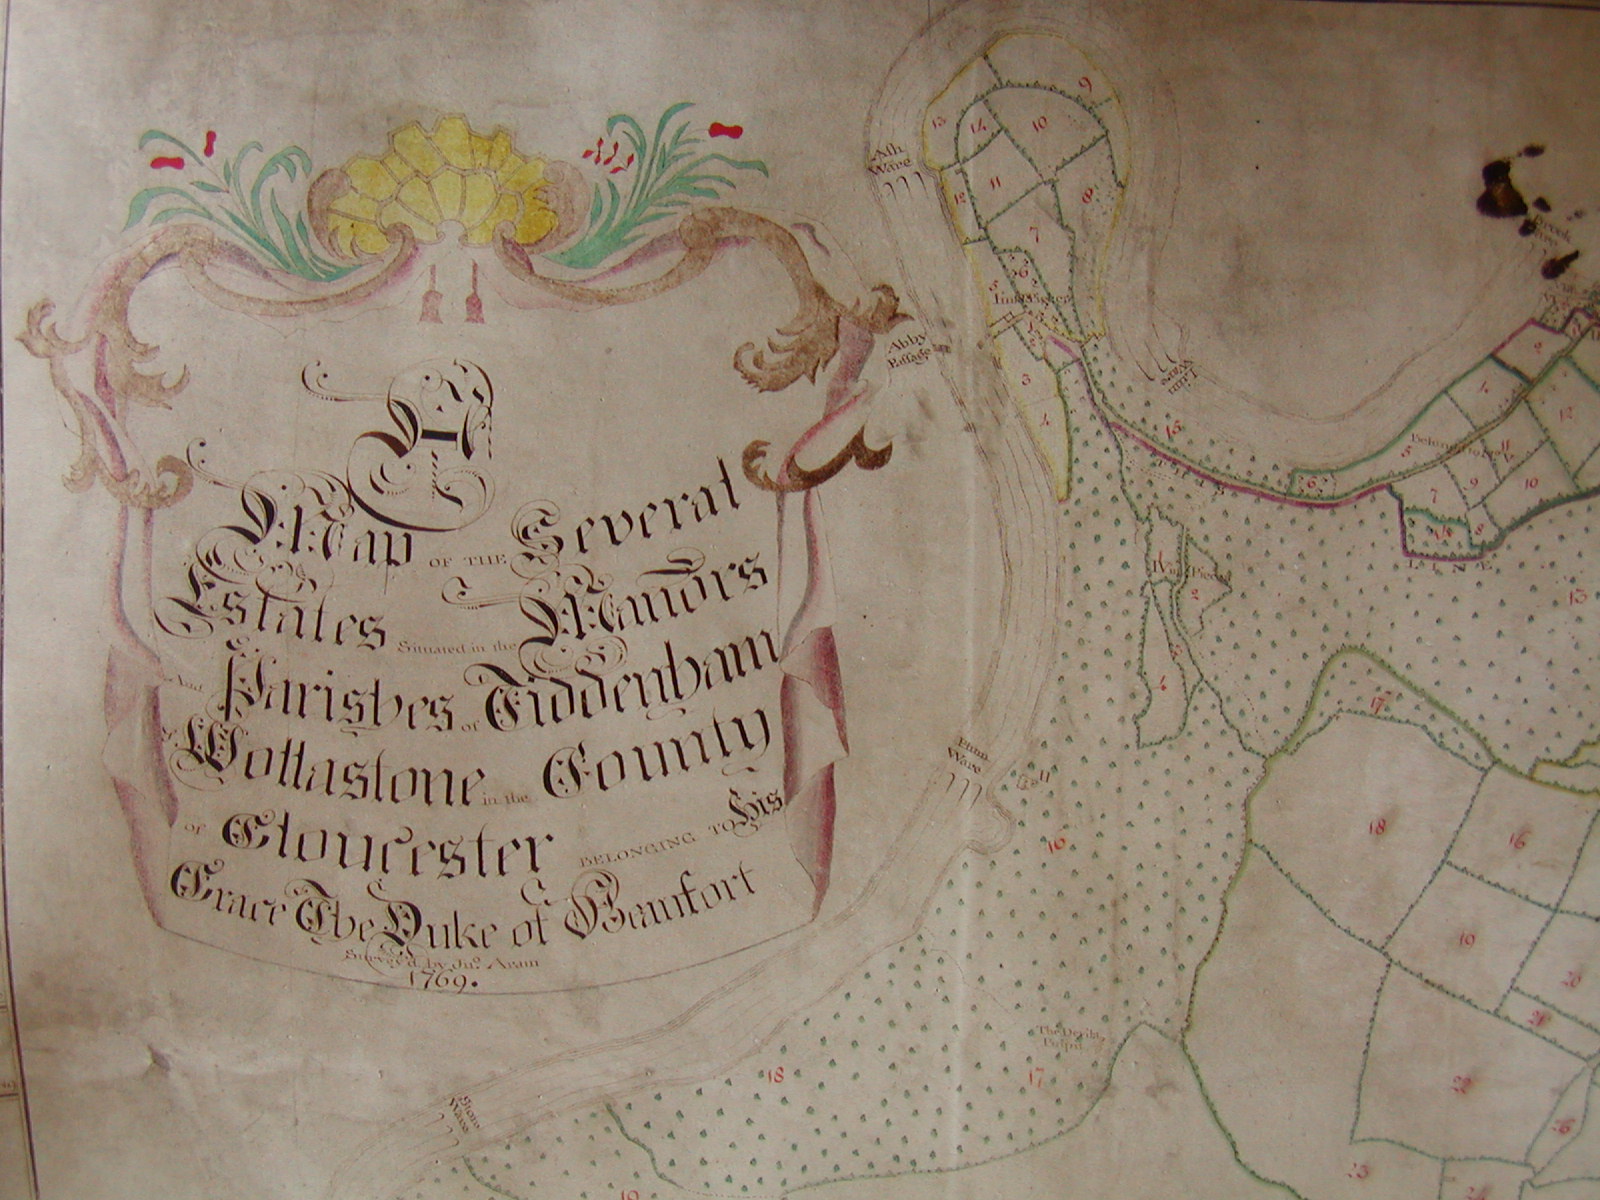 A
Map OF THE Several
Estates Situated in the Manors
And Parishes of Tiddenham
& Wollastone in the County
of Gloucester BELONGING TO His
Grace The Duke of Beaufort
Survey'd by Jno. Aram
1769.
Ash
Ware
Abby
Passage
Ware
Ware
The Devils
Pulpit
Stone
Ware
LINE
9
13
14
10
12
11
8
7
6
5
3
4
15
6
5
4
2
12
11
9
10
7
8
13
1
2
3
4
17
11
16
18
16
19
20
21
22
17
18
26
23
24
19